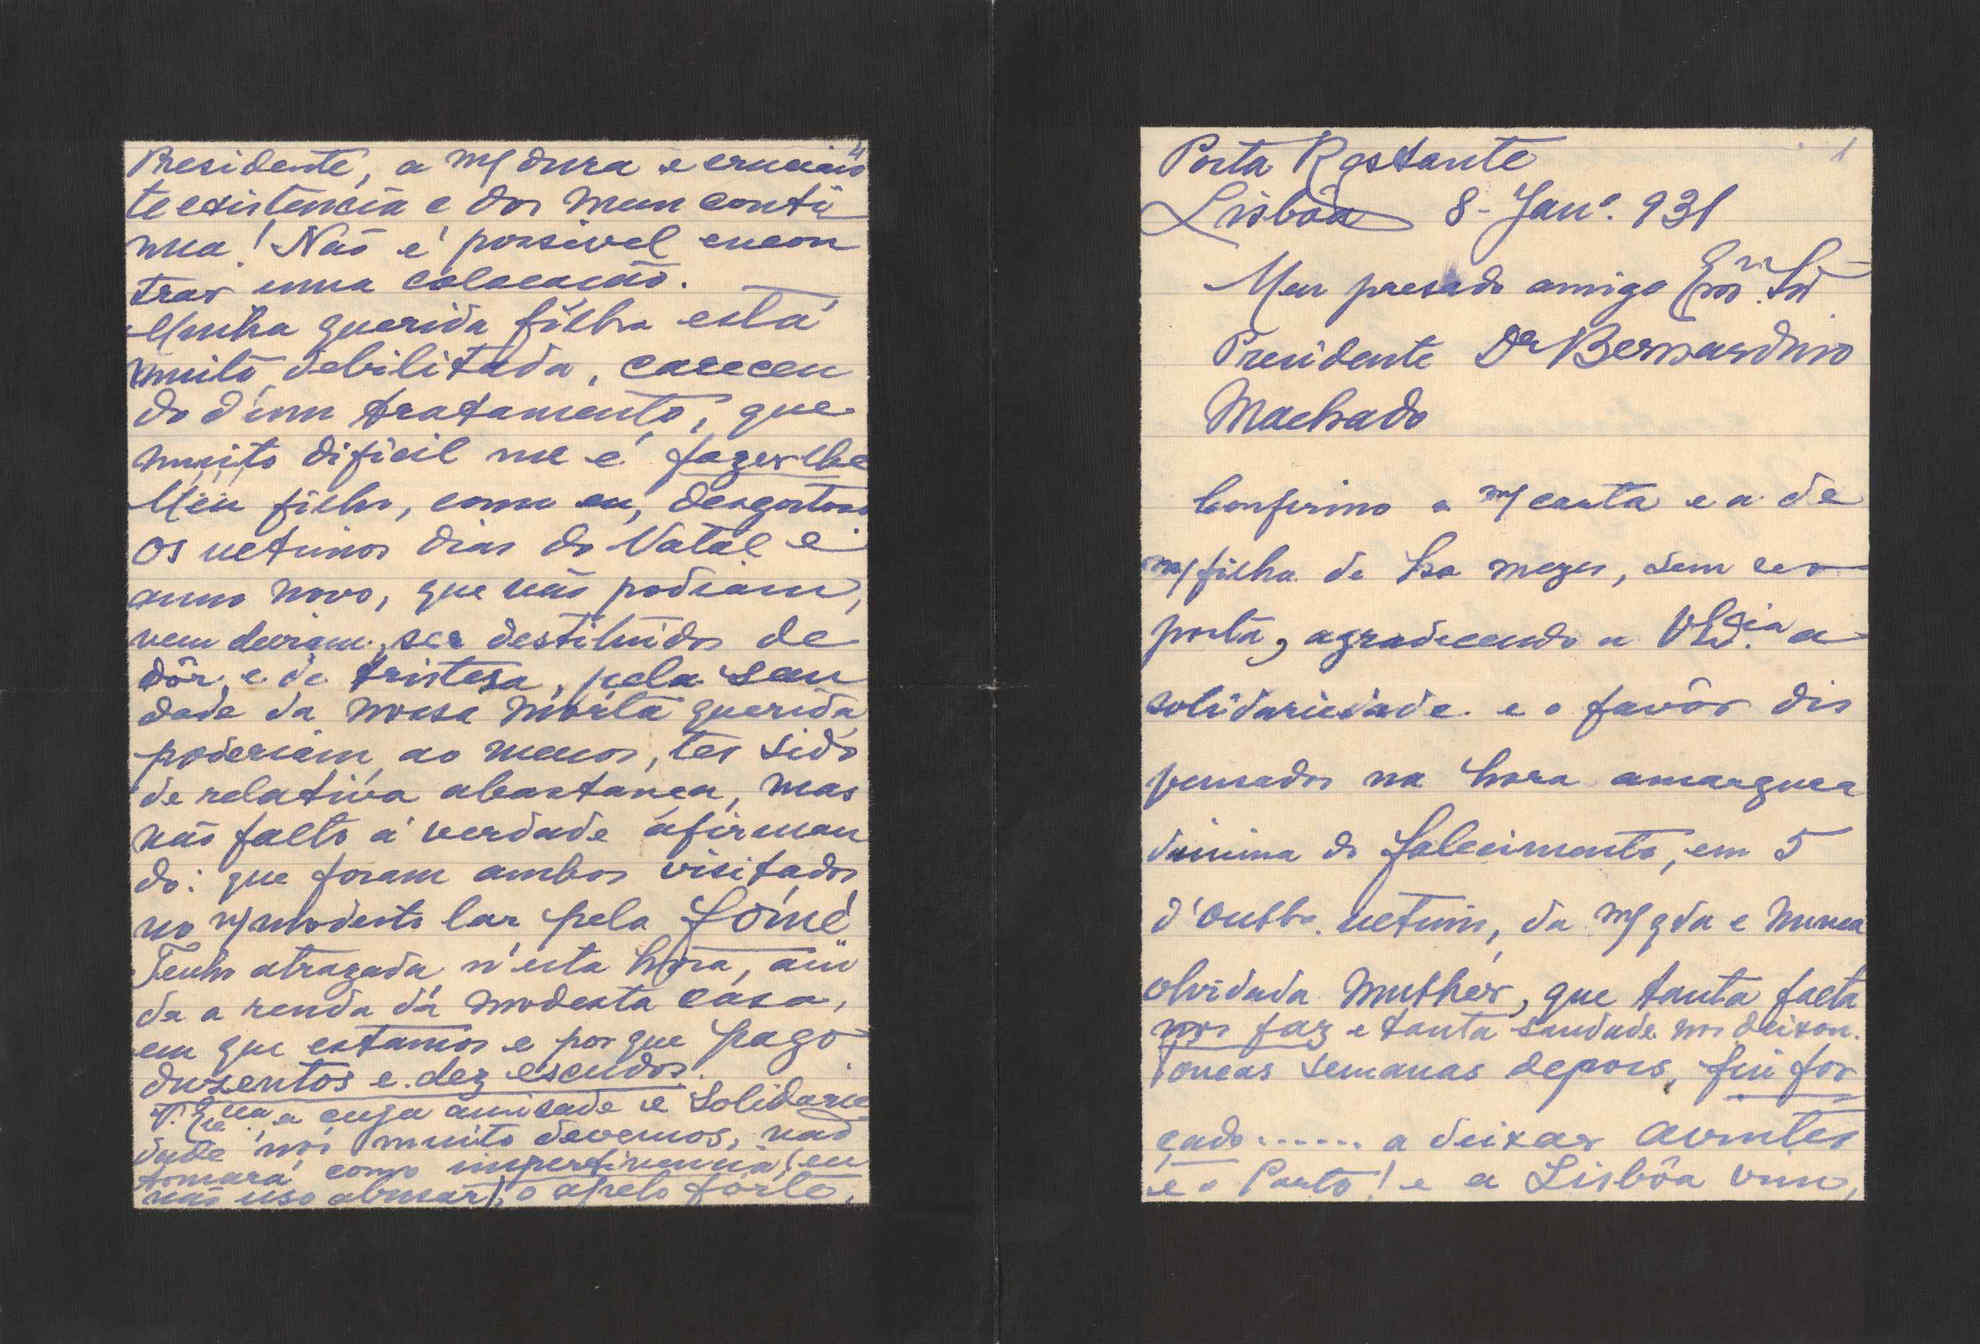 Presidente, a m/ dura e crucian
4
te existencia e dos meus conti
nua! Não é possivel encon
trar uma colocação.
Minha querida filha está
muito debilitada, carecen
do d'um tratamento, que
muito dificil me é fazer-lhe
Meu filho, como eu, desgostoso
Os ultimos dias do Natal e
anno novo, que não podiam,
nem deviam, ser destituidos de
dôr, e de tristesa, pela sau
dade da nossa morta querida,
poderiam, ao menos, ter sido
de relativa abastança, mas
não falto á verdade afirman
do: que foram ambos visitados
no m/ modesto lar pela fome
Tenho atrazada n'esta hora, ain
da a renda da modesta casa,
em que estamos e porque pago
duzentos e dez escudos.
V. Ex.cia, a cuja amisade e solidarie
dade nós muito devemos, não
tomará como impertinencia (eu
não uso abusar), o apelo forte,
Posta Restante
1
Lisbôa 8-Jan.o 931
Meu presado amigo Exmo. Snr.
Presidente Dr Bernardino
Machado
Confirmo a m/ carta e a de
m/ filha de ha mezes, sem res
posta, agradecendo a V. Ex.cia a
solidariedade e o favôr dis
pensados na hora amargura
dissima do falecimento, em 5
d'Outbo. ultimo, da m/ qda e nunca
olvidada Mulher, que tanta falta
nos faz e tanta saudade nos deixou.
Poucas semanas depois, fui for
çado...... a deixar Avintes
e o Porto! e a Lisbôa vim,